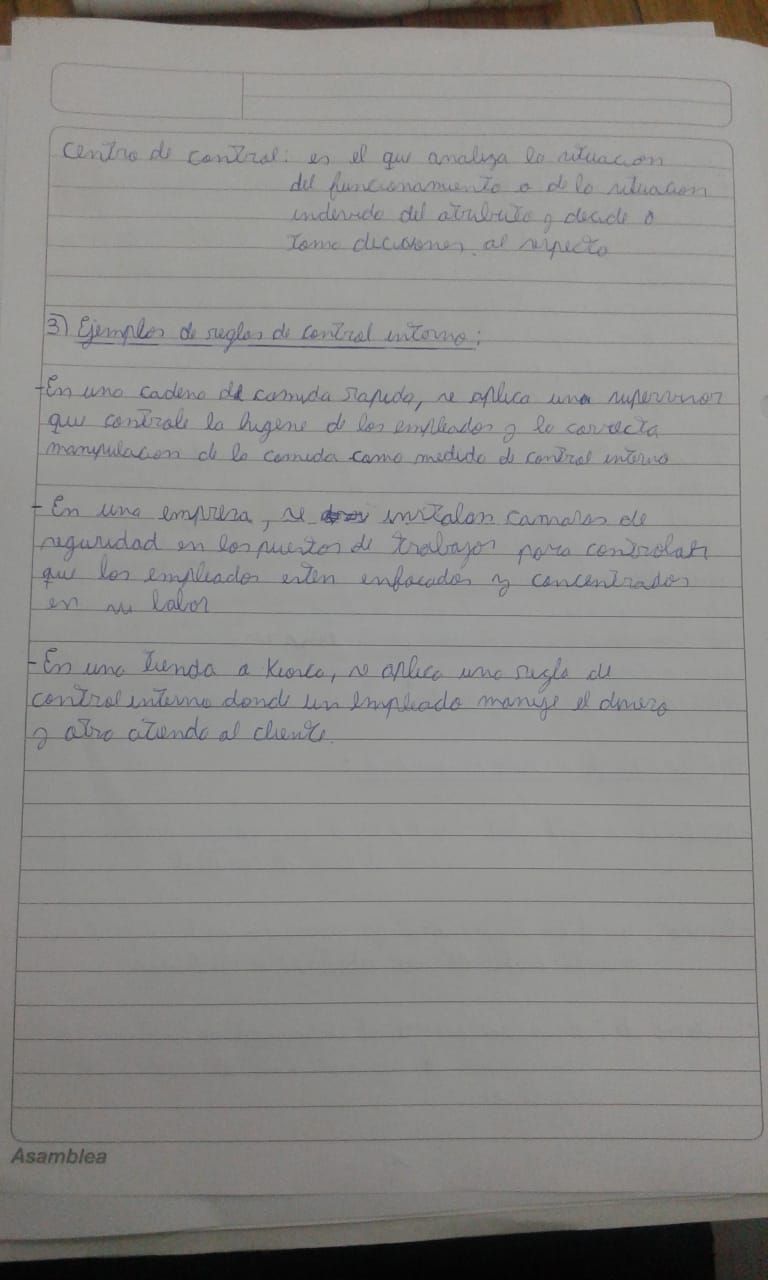 Centro de control: es el que analiza la situacion
del funcionamiento o de la situacion
indevida del atributo y decide o
toma decisiones al respecto
3) Ejemplos de reglas de control interno:
-En una cadena de comida rapida, se aplica una supervisor
que controle la higene de los empleados y la correcta
manipulacion de la comida como medida de control interno
- En una empresa, se instalan camaras de
seguridad en los puestos de trabajos para controlar
que los empleados esten enfocados y concentrados
en su labor
-En una tienda o Kiosco, se aplica una regla de
control interno donde un empleado maneje el dinero
y otro atienda al cliente.
Asamblea